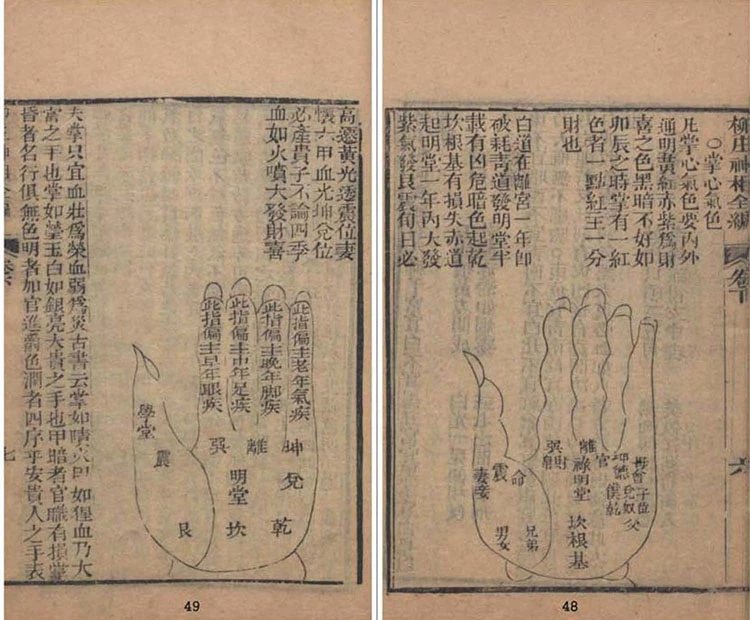 柳庄神相全編
卷下
六
○掌心氣色
凡掌心氣色要內外
通明黃紅赤紫爲財
喜之色黑暗不好如
卯辰之時掌有一紅
色者一點紅主一分
財也
白道在離宮一年卽
破耗靑道發明堂牢
載有凶危暗色起乾
坎根基有損失赤道
起明堂一年內大發
紫氣發艮震旬日必
父
乾
奴僕
兌
坤
官
離
祿
明堂
坎根基
巽
財
命
兄弟
震
妻妾
男女
48
高遷黃光透震位妻
懷六甲血光坤兌位
必產貴子不論四季
血如火噴大發財喜
此指偏主老年氣疾
此指偏主晚年脚疾
此指偏主中年足疾
此指偏主早年眼疾
坤
兌
乾
離
明堂
坎
巽
震
艮
學堂
夫掌只宜血壯爲榮血弱爲災古書云掌如火卽如猩血乃大
富之手也掌如瑩玉白如銀亮大貴之手也甲暗者官職有損掌
昏者名行俱無色明者加官進爵色潤者四序平安貴人之手表
七
49